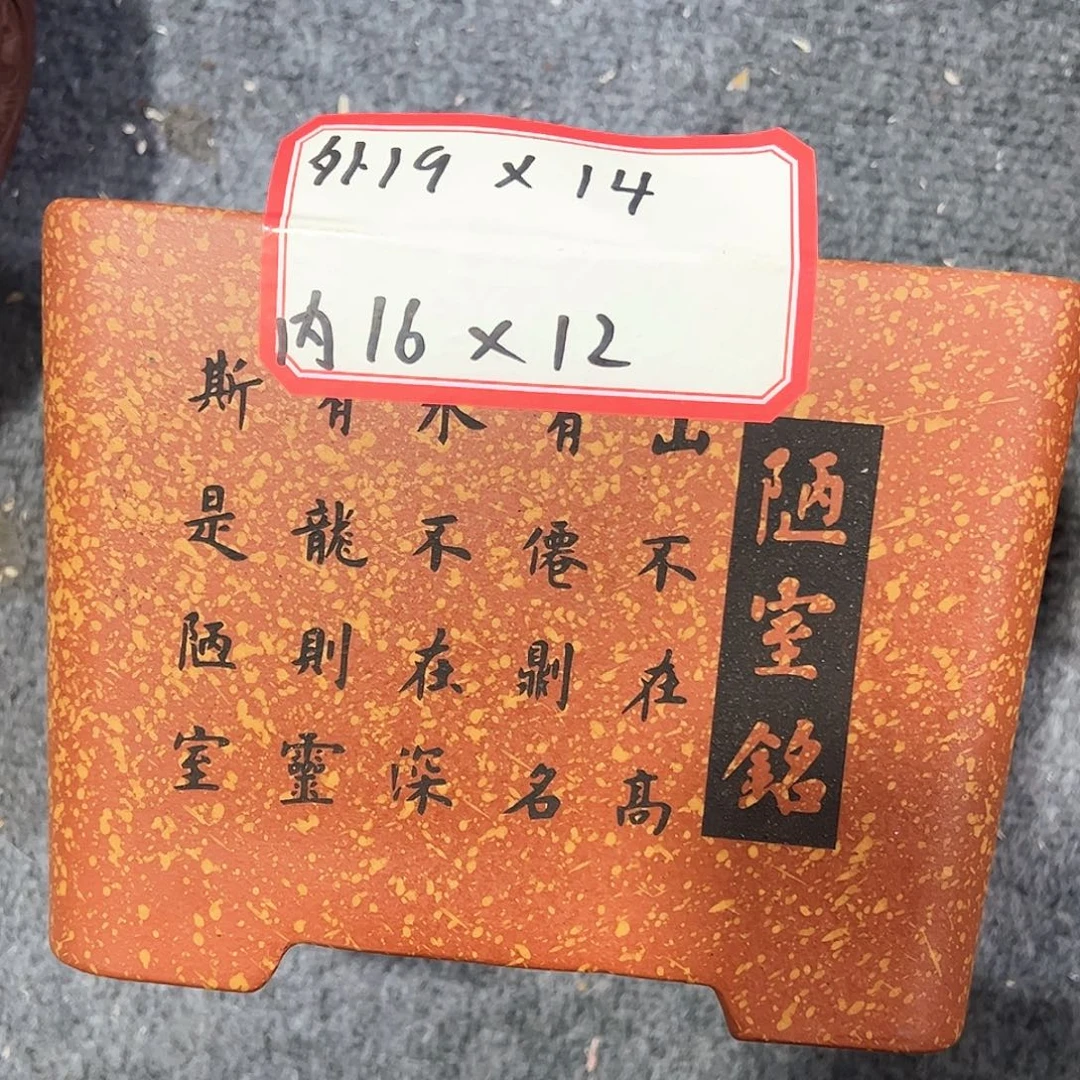 外19 × 14
内16 × 12
陋室銘
山不在高
有僊𠟭名
水不在深
有龍則靈
斯是陋室